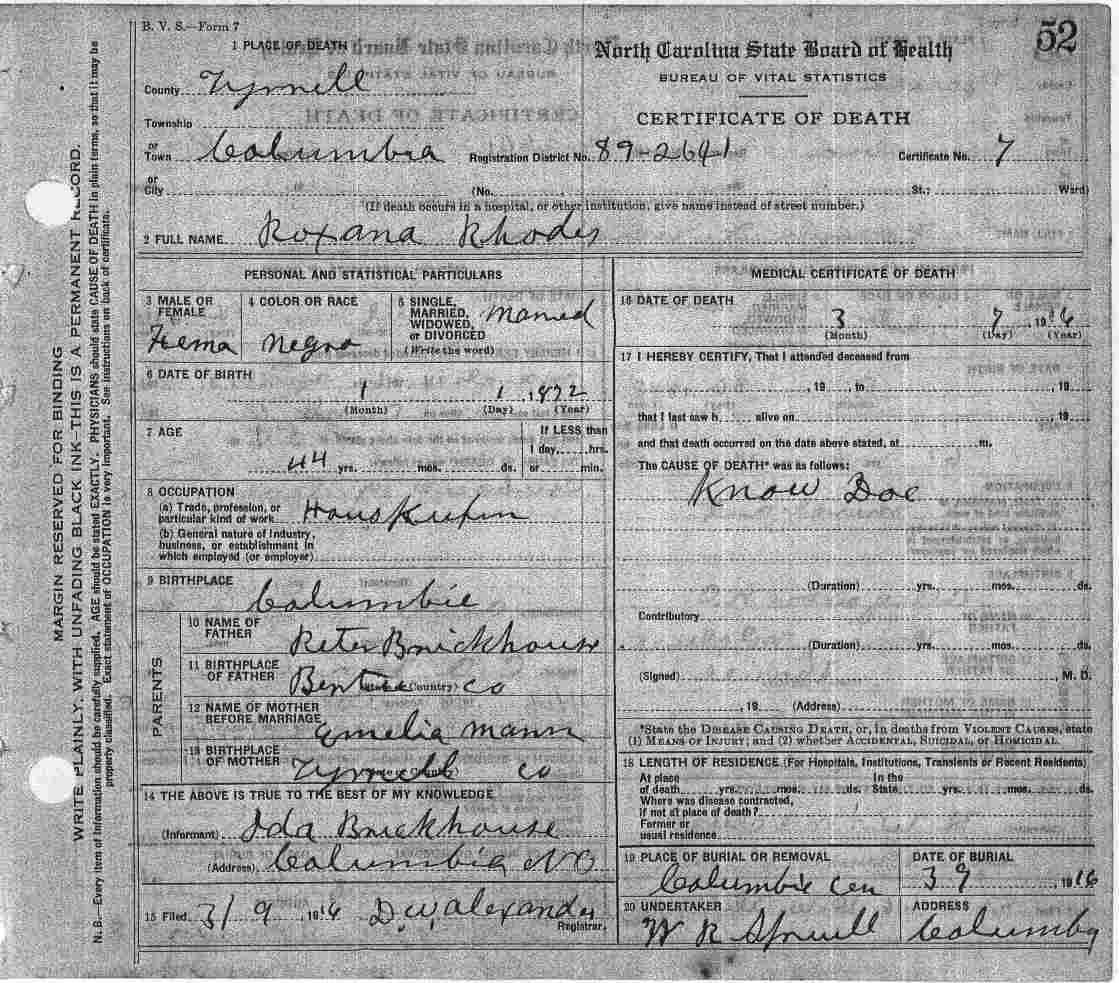 B. V. S.—Form 7
52
1 PLACE OF DEATH
North Carolina State Board of Health
BUREAU OF VITAL STATISTICS
CERTIFICATE OF DEATH
County Tyrrell
Township
or Town Columbia Registration District No. 89-2641 Certificate No. 7
or City (No. St.; Ward)
(If death occurs in a hospital, or other institution, give name instead of street number.)
2 FULL NAME Roxana Rhodes
PERSONAL AND STATISTICAL PARTICULARS
3 MALE OR FEMALE Fema
4 COLOR OR RACE Negro
5 SINGLE, MARRIED, WIDOWED, or DIVORCED (Write the word) Married
6 DATE OF BIRTH
1 1, 1872
(Month) (Day) (Year)
7 AGE
If LESS than
1 day, hrs.
44 yrs. mos. ds. or min.
8 OCCUPATION
(a) Trade, profession, or
particular kind of work Hous Kepin
(b) General nature of Industry,
business, or establishment in
which employed (or employer)
9 BIRTHPLACE
Columbie
PARENTS
10 NAME OF FATHER Peter Brickhouse
11 BIRTHPLACE OF FATHER (Country) Co
12 NAME OF MOTHER BEFORE MARRIAGE Emelia Mann
13 BIRTHPLACE OF MOTHER Tyrrell Co
14 THE ABOVE IS TRUE TO THE BEST OF MY KNOWLEDGE
(Informant) Ida Brickhouse
(Address) Columbia NC
15 Filed 3/9 1916 D.W. Alexander
Registrar.
MEDICAL CERTIFICATE OF DEATH
16 DATE OF DEATH
3 7, 1916
(Month) (Day) (Year)
17 I HEREBY CERTIFY, That I attended deceased from
, 19 , to , 19
that I last saw h alive on , 19
and that death occurred on the date above stated, at m.
The CAUSE OF DEATH* was as follows:
Know Doc
(Duration) yrs. mos. ds.
Contributory
(Duration) yrs. mos. ds.
(Signed) , M. D.
, 19 (Address)
*State the DISEASE CAUSING DEATH, or, in deaths from VIOLENT CAUSES, state
(1) MEANS OF INJURY; and (2) whether ACCIDENTAL, SUICIDAL, or HOMICIDAL.
18 LENGTH OF RESIDENCE (For Hospitals, Institutions, Transients or Recent Residents)
At place In the
of death yrs. mos. ds. State yrs. mos. ds.
Where was disease contracted,
if not at place of death?
Former or
usual residence
19 PLACE OF BURIAL OR REMOVAL DATE OF BURIAL
Columbie Cem 3 9 1916
20 UNDERTAKER ADDRESS
W R Spruill Columby
MARGIN RESERVED FOR BINDING
WRITE PLAINLY, WITH UNFADING BLACK INK—THIS IS A PERMANENT RECORD.
N. B.—Every item of information should be carefully supplied. AGE should be stated EXACTLY. PHYSICIANS should state CAUSE OF DEATH in plain terms, so that it may be
properly classified. Exact statement of OCCUPATION is very important. See instructions on back of certificate.